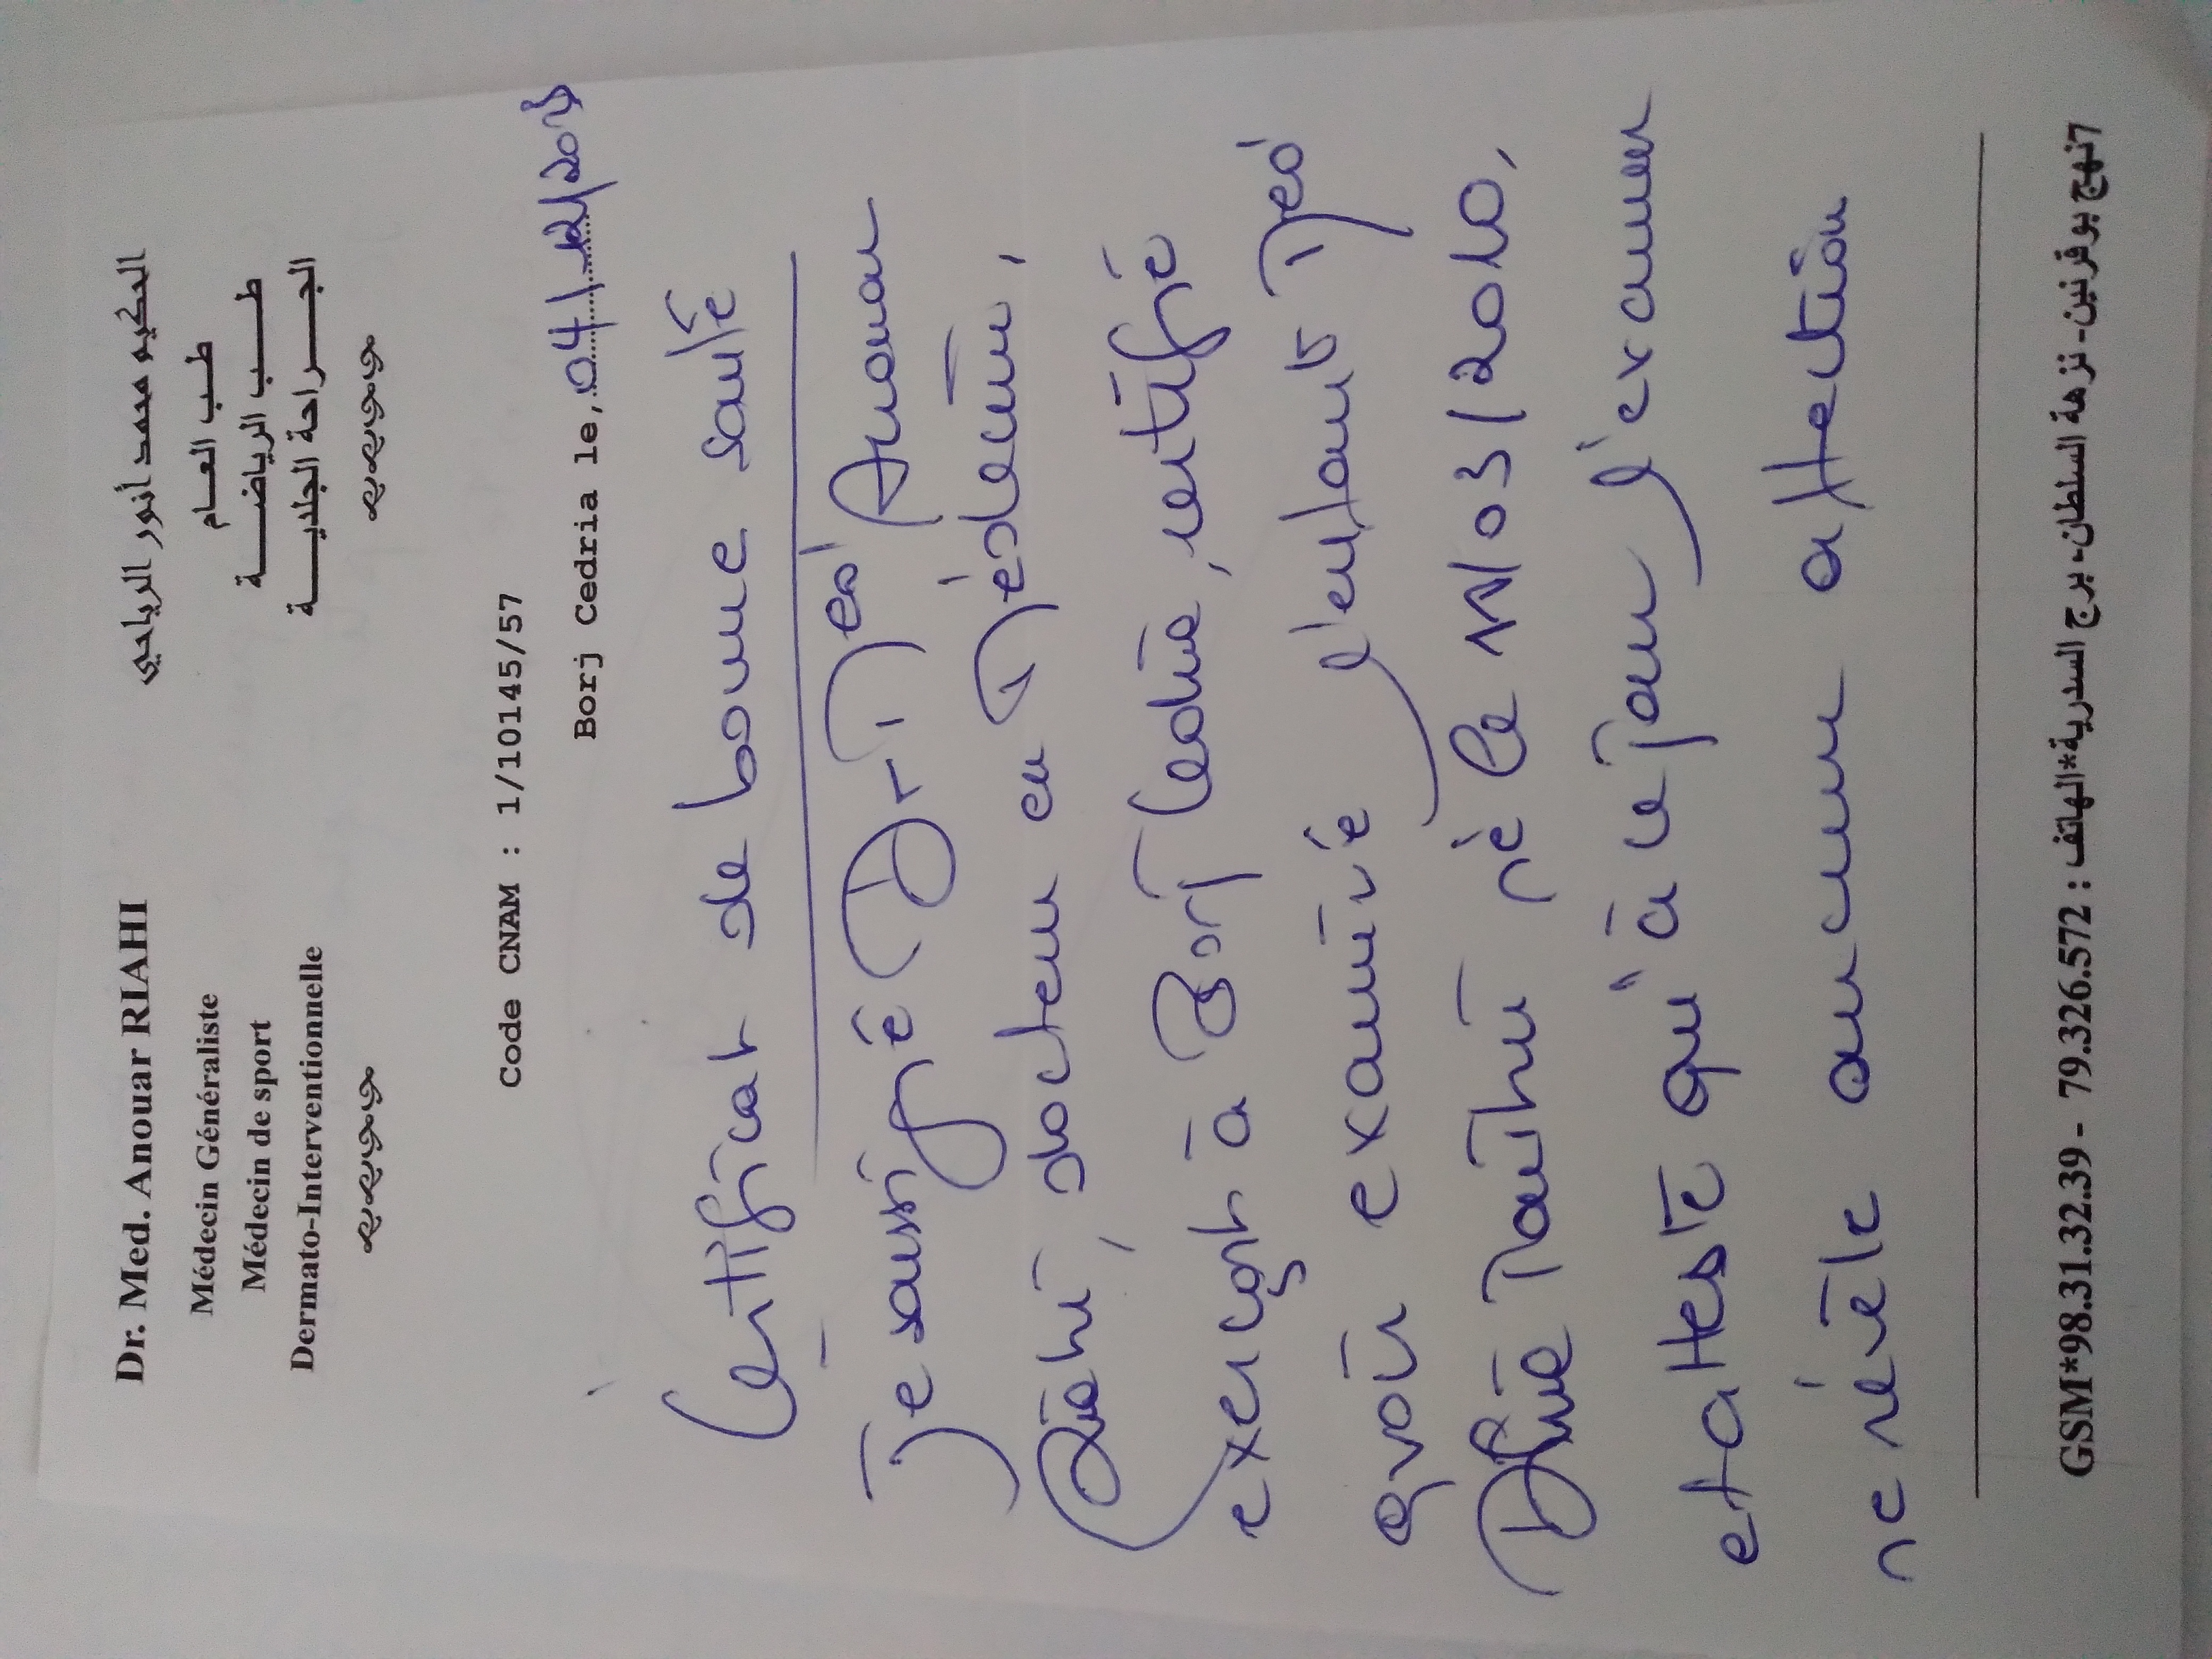 Dr. Med. Anouar RIAHI
Médecin Généraliste
Médecin de sport
Dermato-Interventionnelle
الحكيم محمد أنور الرياحي
طب العام
طب الرياضة
الجراحة الجلدية
Code CNAM : 1/10145/57
Borj Cedria le, 04/12/20
Certificat de bonne santé
Je soussigné Dr Med Anouar
Riahi, docteur en Médecine,
exerçant à Borj Cedria, certifie
avoir examiné l'enfant Med
Dhia né le 11/03/2010,
et atteste qu'à ce jour l'examen
ne révèle aucune affection
GSM*98.31.32.39 - 79.326.572 : الهاتف*7نهج بوقرنين- نزهة السلطان- برج السدرية